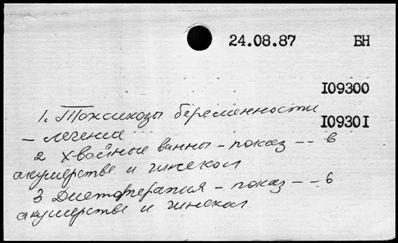 24.08.87 БН
I09300
1. Токсикозы беременности
I0930I
– лечение
2 Хвойные ванны – показ -- в
акушерстве и гинекол
3 Диетотерапия – показ -- в
акушерстве и гинекол